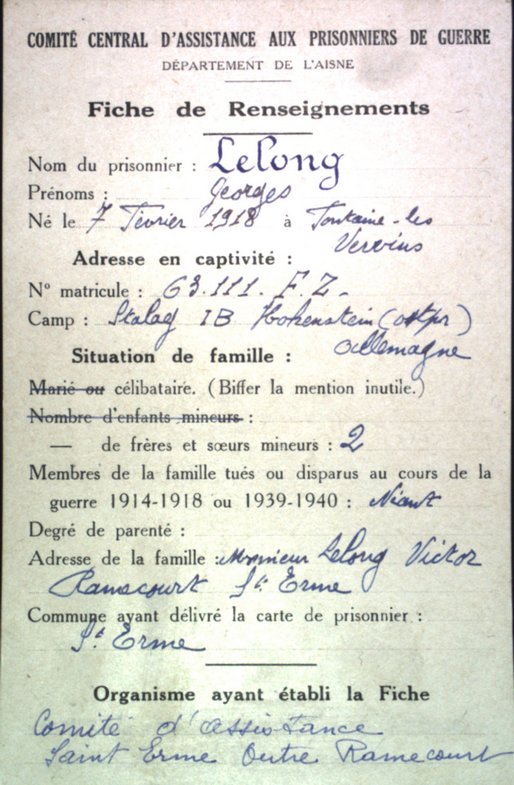 COMITÉ CENTRAL D'ASSISTANCE AUX PRISONNIERS DE GUERRE
DÉPARTEMENT DE L'AISNE
Fiche de Renseignements
Nom du prisonnier : Lelong
Prénoms : Georges
Né le 7 Février 1918 à Fontaine-les
Vervins
Adresse en captivité :
N° matricule : 63.111. F.Z.
Camp : Stalag IB Hohenstein (ostpr)
Allemagne
Situation de famille :
Marié ou célibataire. (Biffer la mention inutile.)
Nombre d'enfants mineurs :
— de frères et sœurs mineurs : 2
Membres de la famille tués ou disparus au cours de la
guerre 1914-1918 ou 1939-1940 : Néant
Degré de parenté :
Adresse de la famille : Monsieur Lelong Victor
Ramecourt St Erme
Commune ayant délivré la carte de prisonnier :
St Erme
Organisme ayant établi la Fiche
Comité d'assistance
Saint Erme Outre Ramecourt